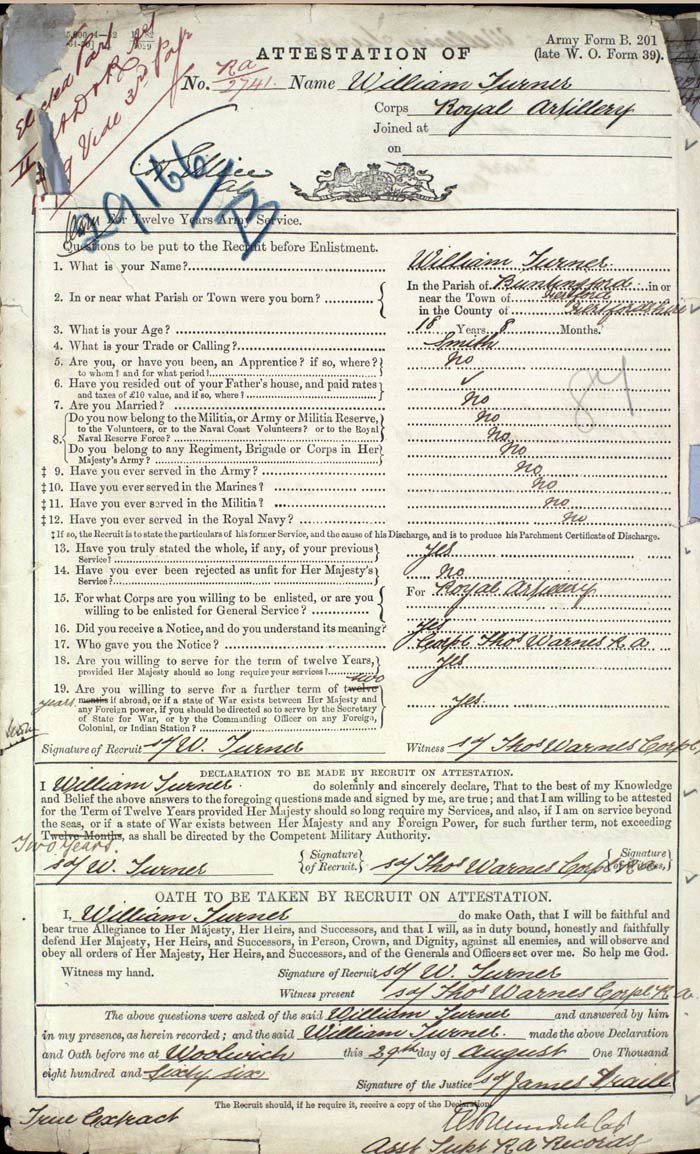 Army Form B. 201
(late W. O. Form 39).
ATTESTATION OF
No. RA 2741. Name William Turner
Corps Royal Artillery
Joined at
on
Elected Part
Vide 3rd
29166/B
For Twelve Years Army Service.
Questions to be put to the Recruit before Enlistment.
1. What is your Name? William Turner
2. In or near what Parish or Town were you born? In the Parish of Buntingford in or
near the Town of Hertford
in the County of Hertfordshire
3. What is your Age? 18 Years, 8 Months.
4. What is your Trade or Calling? Smith
5. Are you, or have you been, an Apprentice? if so, where? No
to whom? and for what period?
6. Have you resided out of your Father's house, and paid rates ✓
and taxes of £10 value, and if so, where?
7. Are you Married? No
8. Do you now belong to the Militia, or Army or Militia Reserve, No
to the Volunteers, or to the Naval Coast Volunteers? or to the Royal
Naval Reserve Force? No
Do you belong to any Regiment, Brigade or Corps in Her No
Majesty's Army?
‡ 9. Have you ever served in the Army? No
‡ 10. Have you ever served in the Marines? No
‡ 11. Have you ever served in the Militia? No
‡ 12. Have you ever served in the Royal Navy? No
84
‡ If so, the Recruit is to state the particulars of his former Service, and the cause of his Discharge, and is to produce his Parchment Certificate of Discharge.
13. Have you truly stated the whole, if any, of your previous Yes
Service?
14. Have you ever been rejected as unfit for Her Majesty's No
Service?
15. For what Corps are you willing to be enlisted, or are you For Royal Artillery
willing to be enlisted for General Service?
16. Did you receive a Notice, and do you understand its meaning? Yes
17. Who gave you the Notice? Corpl Thos Warnes R.A
18. Are you willing to serve for the term of twelve Years, Yes
provided Her Majesty should so long require your services?
19. Are you willing to serve for a further term of twelve two
months years if abroad, or if a state of War exists between Her Majesty and
any Foreign power, if you should be directed so to serve by the Secretary Yes.
of State for War, or by the Commanding Officer on any Foreign,
Colonial, or Indian Station?
Signature of Recruit sd/ W. Turner Witness sd/ Thos Warnes Corpl,
DECLARATION TO BE MADE BY RECRUIT ON ATTESTATION.
I William Turner do solemnly and sincerely declare, That to the best of my Knowledge
and Belief the above answers to the foregoing questions made and signed by me, are true; and that I am willing to be attested
for the Term of Twelve Years provided Her Majesty should so long require my Services, and also, if I am on service beyond
the seas, or if a state of War exists between Her Majesty and any Foreign Power, for such further term, not exceeding
Twelve Months, Two Years. as shall be directed by the Competent Military Authority.
sd/ W. Turner {Signature of Recruit. sd/ Thos Warnes Corpl R.a {Signature of Witness.
OATH TO BE TAKEN BY RECRUIT ON ATTESTATION.
I, William Turner do make Oath, that I will be faithful and
bear true Allegiance to Her Majesty, Her Heirs, and Successors, and that I will, as in duty bound, honestly and faithfully
defend Her Majesty, Her Heirs, and Successors, in Person, Crown, and Dignity, against all enemies, and will observe and
obey all orders of Her Majesty, Her Heirs, and Successors, and of the Generals and Officers set over me. So help me God.
Witness my hand. Signature of Recruit sd/ W. Turner
Witness present sd/ Thos Warnes Corpl R.a
The above questions were asked of the said William Turner and answered by him
in my presence, as herein recorded; and the said William Turner. made the above Declaration
and Oath before me at Woolwich this 29th day of August One Thousand
eight hundred and Sixty six
Signature of the Justice sd/ James
The Recruit should, if he require it, receive a copy of the Declaration.
True Extract
Asst Supt R.a Records